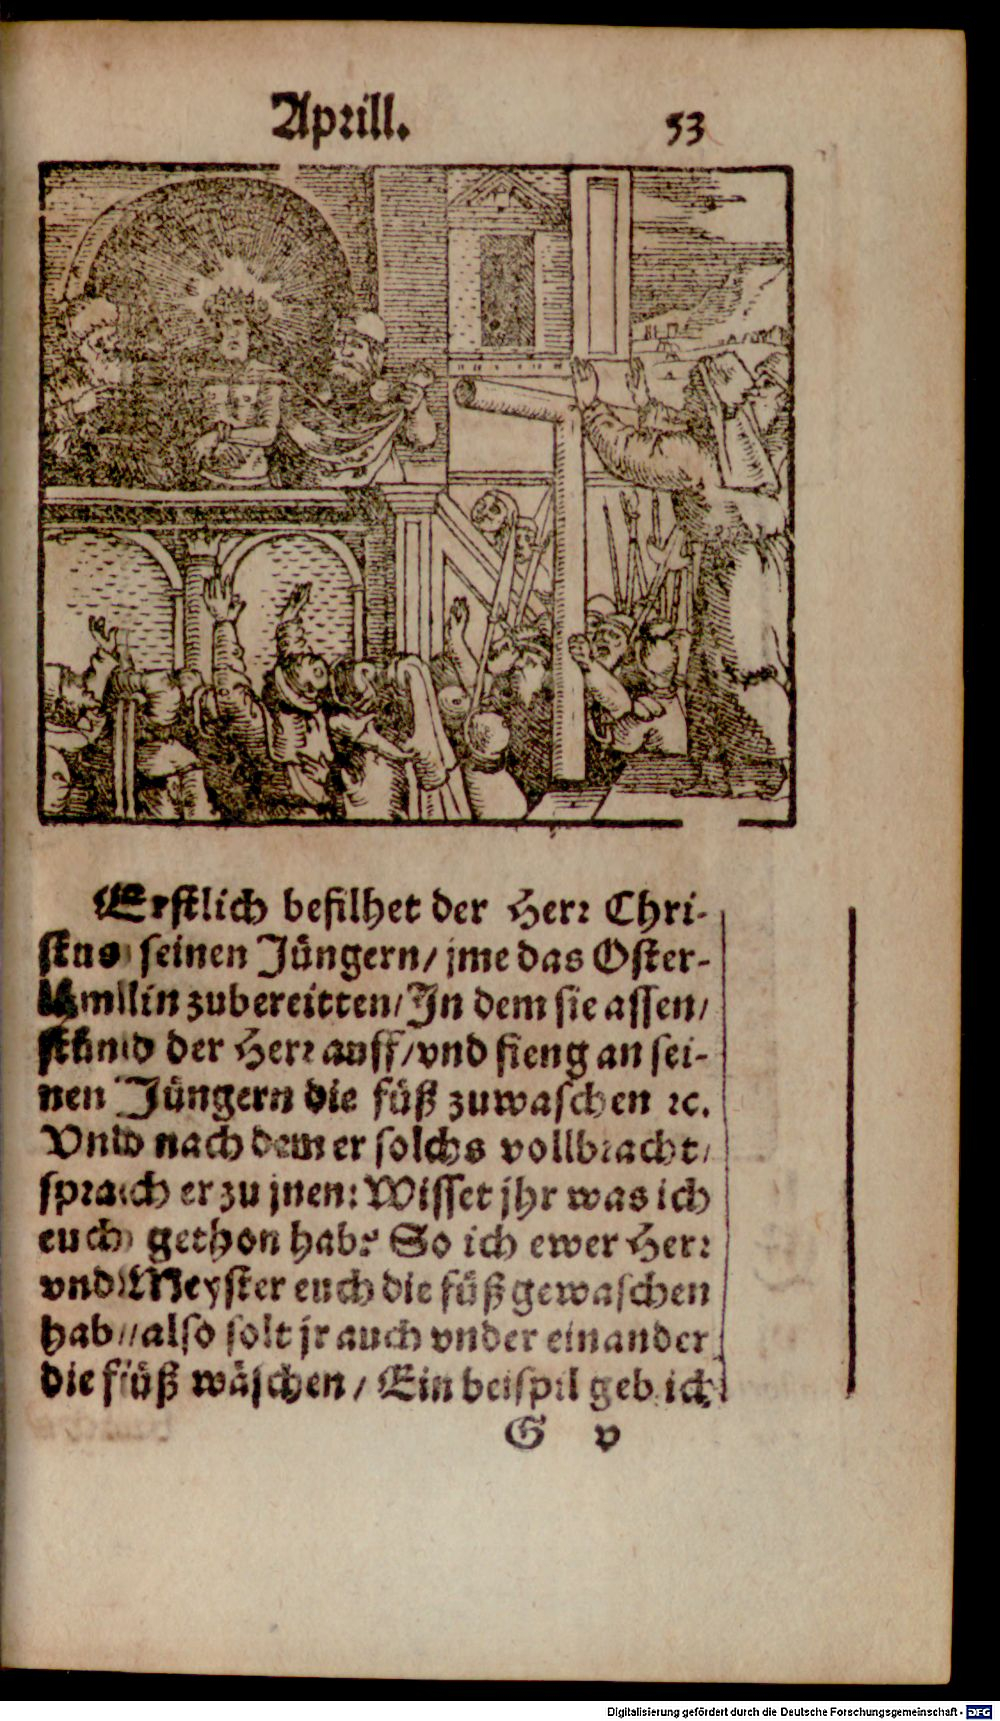 Aprill.
53
Erstlich befilhet der Herr Chri-
stus seinen Jüngern/ jme das Oster-
lämllin zubereitten/ In dem sie assen/
stůnd der Herr auff/ vnd fieng an sei-
nen Jüngern die füß zuwaschen ꝛc.
Vnd nach dem er solchs vollbracht/
sprach er zu jnen: Wisset jhr was ich
euch gethon hab? So ich ewer Herr
vnd Meyster euch die füß gewaschen
hab/ also solt jr auch vnder einander
die füß wäschen/ Ein beispil geb ich
G v
Digitalisierung gefördert durch die Deutsche Forschungsgemeinschaft - DFG